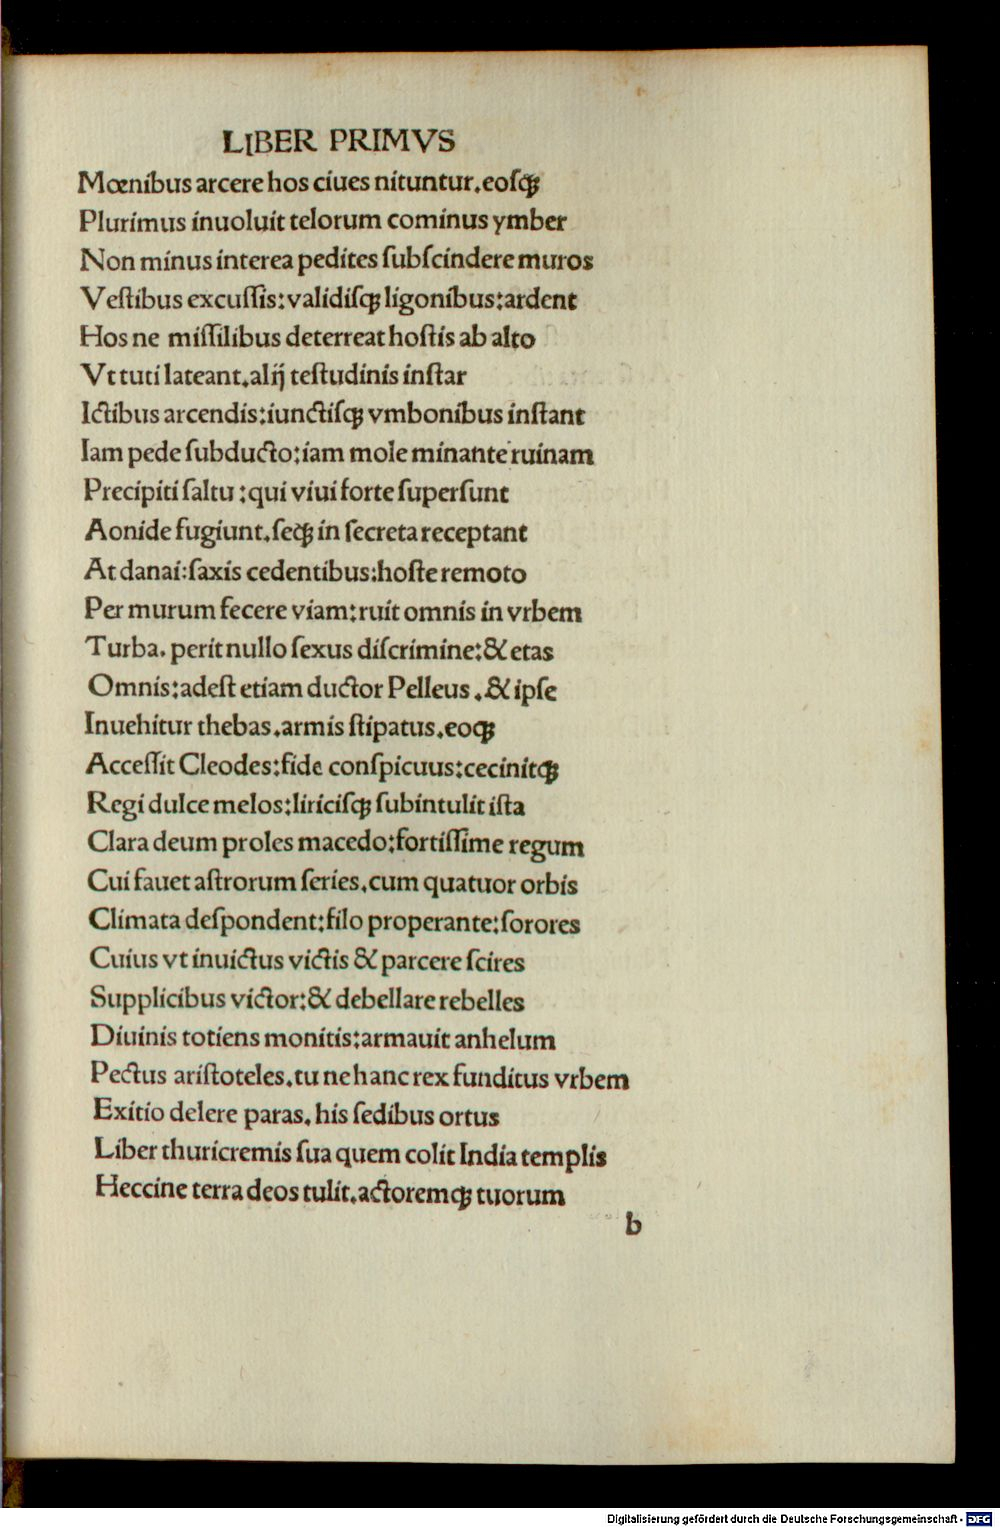 LIBER PRIMVS
Mœnibus arcere hos ciues nituntur.eoſqꝫ
Plurimus inuoluit telorum cominus ymber
Non minus interea pedites ſubſcindere muros
Veſtibus excuſſis:validiſqꝫ ligonibus:ardent
Hos ne miſſilibus deterreat hoſtis ab alto
Vt tuti lateant.alij teſtudinis inſtar
Ictibus arcendis:iunctiſqꝫ vmbonibus inſtant
Iam pede ſubducto:iam mole minante ruinam
Precipiti ſaltu:qui viui forte ſuperſunt
Aonide fugiunt.ſeqꝫ in ſecreta receptant
At danai:ſaxis cedentibus:hoſte remoto
Per murum fecere viam:ruit omnis in vrbem
Turba. perit nullo ſexus diſcrimine:& etas
Omnis:adeſt etiam ductor Pelleus .& ipſe
Inuehitur thebas.armis ſtipatus.eoqꝫ
Acceſſit Cleodes:fide conſpicuus:cecinitqꝫ
Regi dulce melos:liriciſqꝫ ſubintulit iſta
Clara deum proles macedo:fortiſſime regum
Cui fauet aſtrorum ſeries.cum quatuor orbis
Climata deſpondent:filo properante:ſorores
Cuius vt inuictus victis & parcere ſcires
Supplicibus victor:& debellare rebelles
Diuinis totiens monitis:armauit anhelum
Pectus ariſtoteles.tu ne hanc rex funditus vrbem
Exitio delere paras. his ſedibus ortus
Liber thuricremis ſua quem colit India templis
Heccine terra deos tulit.actoremqꝫ tuorum
b
Digitalisierung gefördert durch die Deutsche Forschungsgemeinschaft - DFG